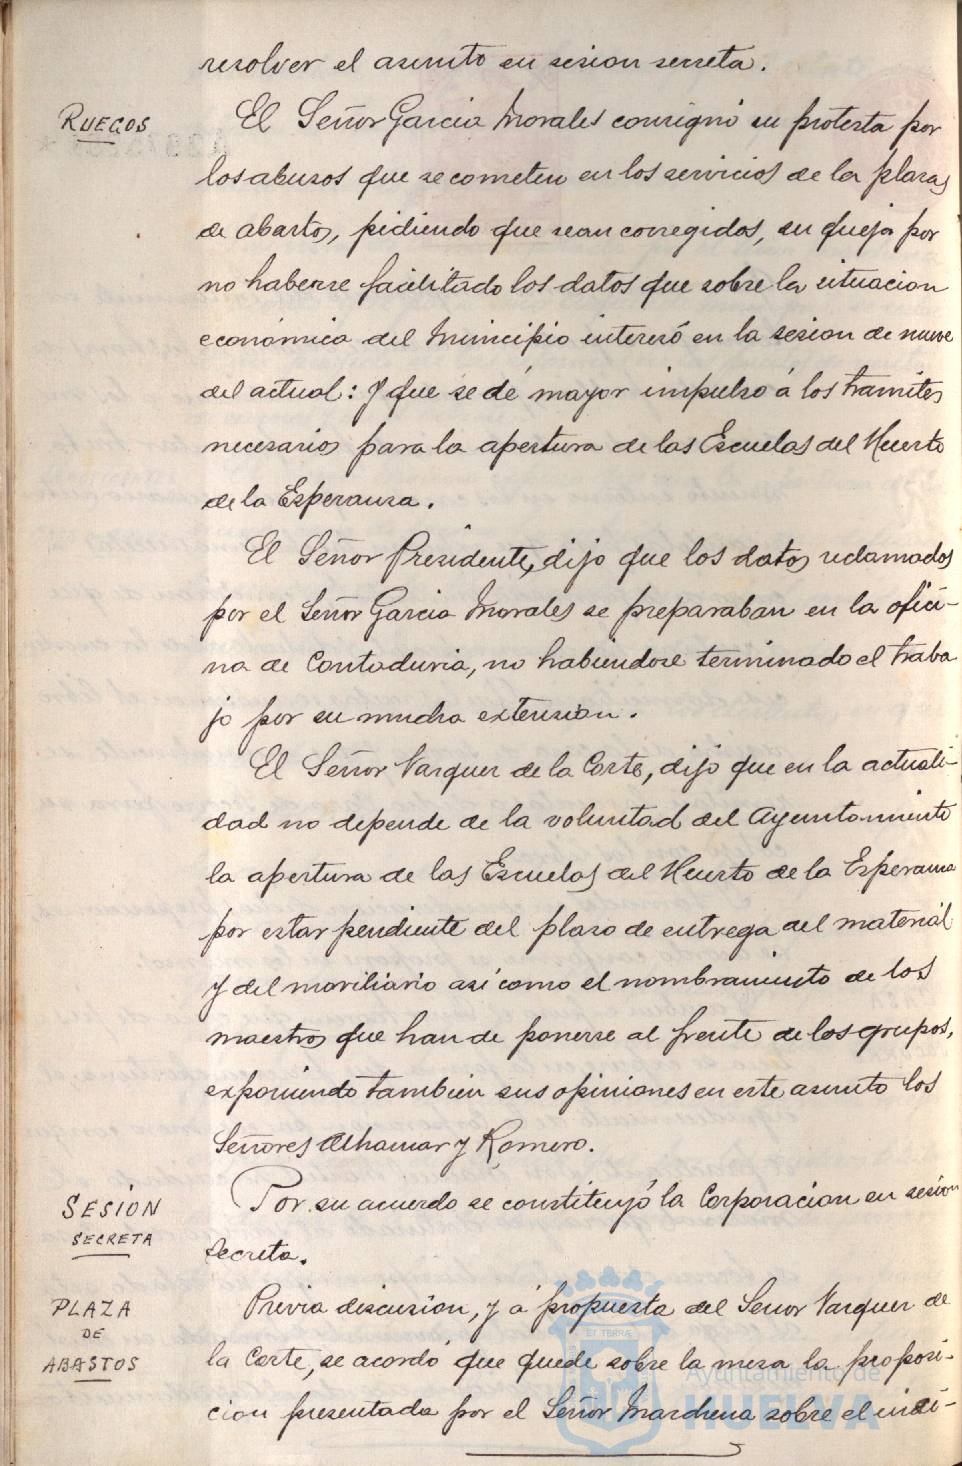 resolver el asunto en sesion secreta.
RUEGOS
El Señor Garcia Morales consignó su protesta por
los abusos que se cometen en los servicios de la plaza
de abastos, pidiendo que sean corregidos, su queja por
no haberse facilitado los datos que sobre la situacion
económica del Municipio interesó en la sesion de nueve
del actual: y que se dé mayor impulso á los tramites
necesarios para la apertura de las Escuelas del Huerto
de la Esperanza.
El Señor Presidente, dijo que los datos reclamados
por el Señor Garcia Morales se preparaban en la ofici-
na de Contaduria, no habiendose terminado el traba
jo por su mucha extension.
El Señor Vazquez de la Corte, dijo que en la actuali-
dad no depende de la voluntad del Ayuntamiento
la apertura de las Escuelas del Huerto de la Esperanza
por estar pendiente del plazo de entrega del material
y del moviliario asi como el nombramiento de los
maestros que han de ponerse al frente de los grupos,
exponiendo tambien sus opiniones en este asunto los
Señores Alhamar y Romero.
SESION
SECRETA
Por su acuerdo se constituyó la Corporacion en sesion
secreta.
PLAZA
DE
ABASTOS
Previa discusion, y á propuesta del Señor Vazquez de
la Corte, se acordó que quede sobre la mesa la proposi-
cion presentada por el Señor Marchena sobre el indi-
ET TERRÆ
Ayuntamiento de
HUELVA